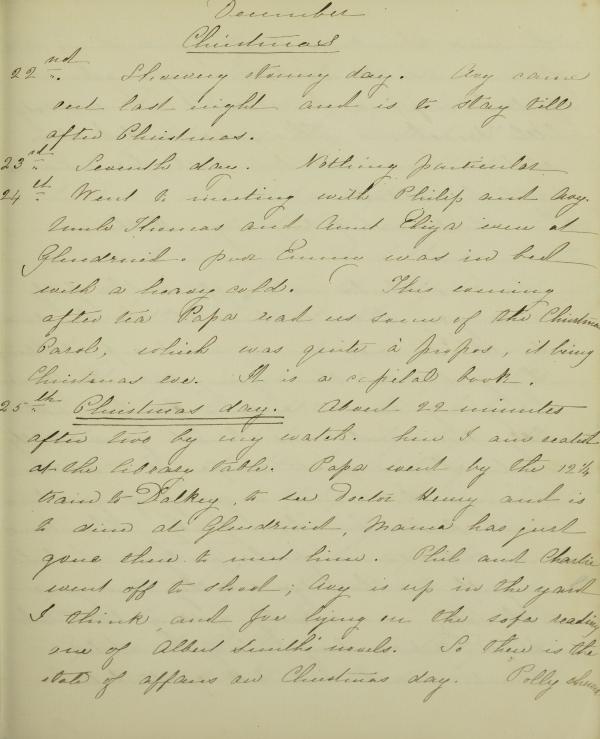 December
Christmas
22nd. Showery stormy day. Avy came
out last night and is to stay till
after Christmas.
23rd. Seventh day. Nothing particular
24th. Went to meeting with Philip and Avy.
Uncle Thomas and Aunt Eliza were at
Glendruid. poor Emma was in bed
with a heavy cold. This evening
after tea Papa read us some of the Christmas
Carol, which was quite à propos, it being
Christmas eve. It is a capital book.
25th. Christmas day. About 22 minutes
after two by my watch. here I am seated
at the library table. Papa went by the 12¼
train to Dalkey, to see Doctor Henry and is
to dine at Glendruid, Mama has just
gone there to meet him. Phil and Charlie
went off to shoot; Avy is up in the yard
I think, and Joe lying on the sofa reading
one of Albert Smith's novels. So there is the
state of affairs on Christmas day. Polly